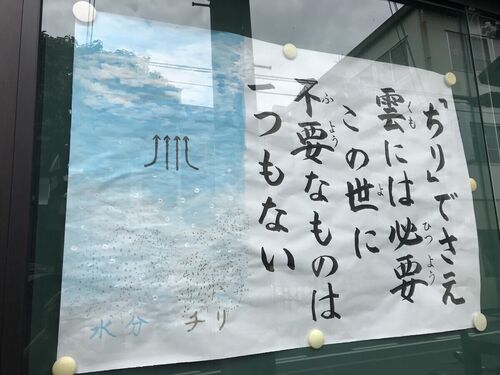 「ちり」でさえ
雲には必要
この世に
不要なものは
一つもない
くも
ひつよう
よ
ふよう
水分
チリ